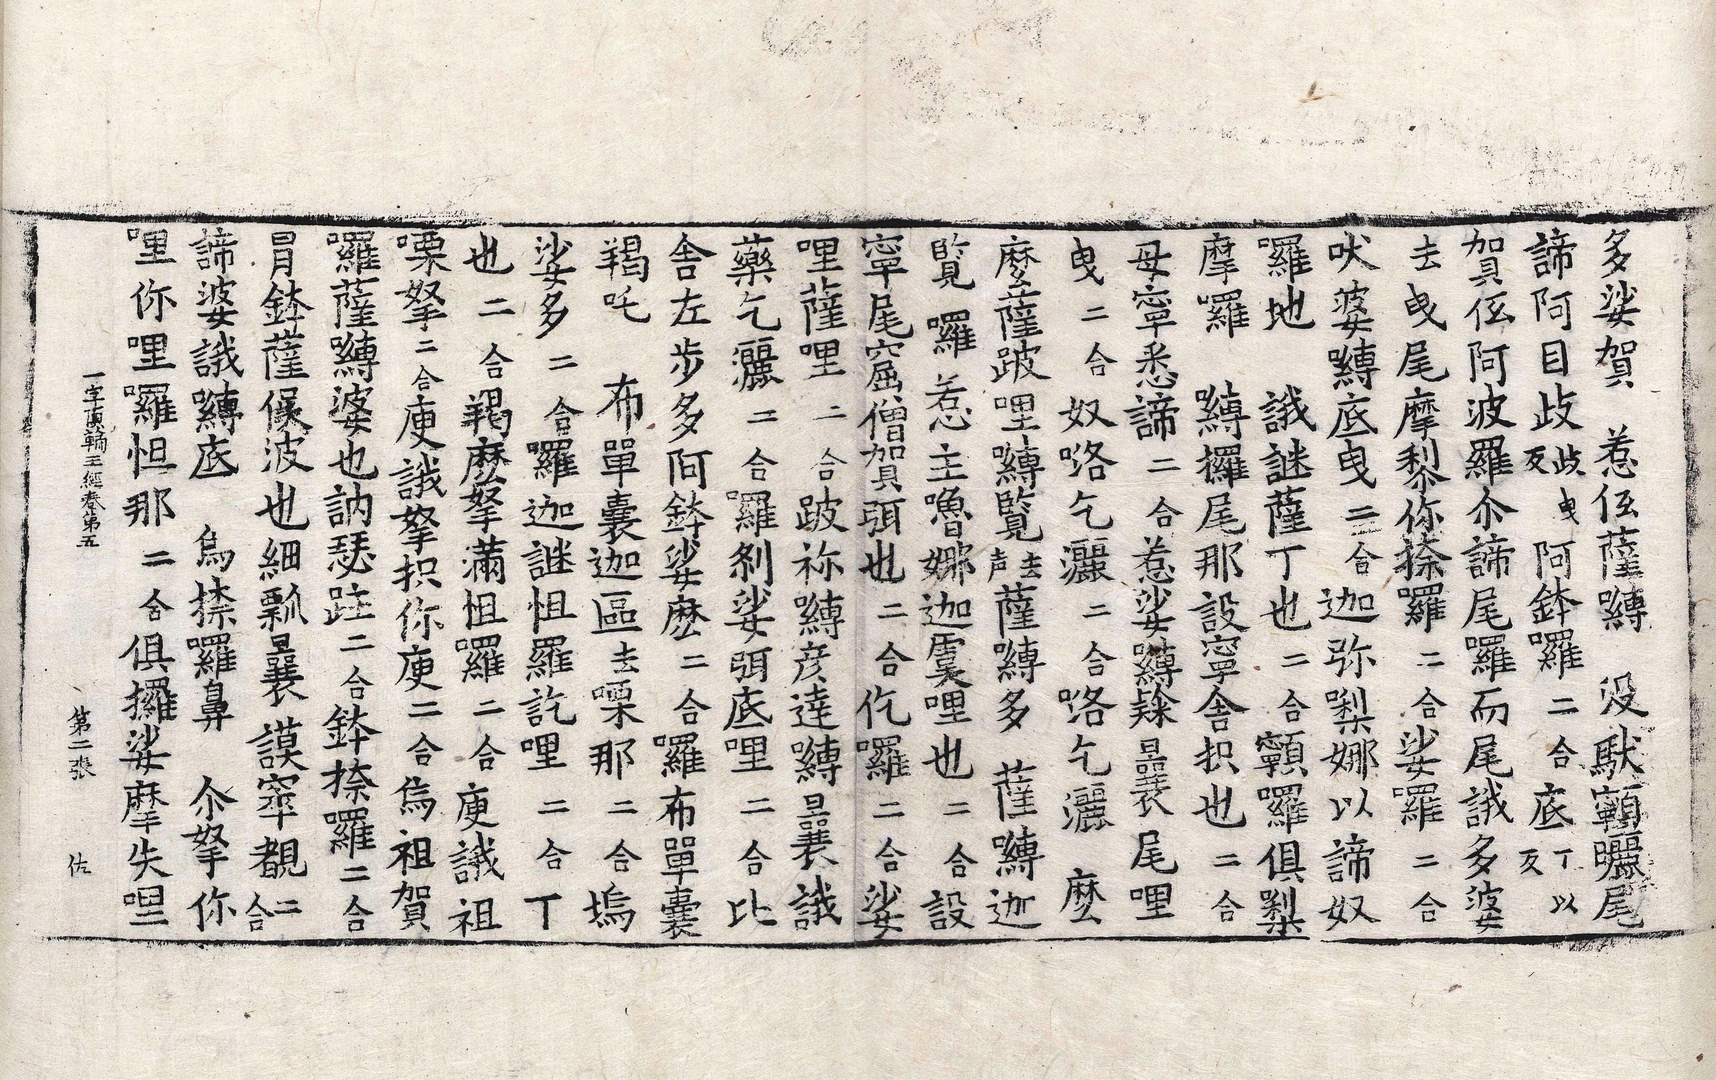 多娑賀 惹伍薩嚩 没馱顐囇尾
諦阿目歧歧曳反阿鉢囉二合底丁以反
賀伍阿波羅尒諦尾囉而尾誐多婆
去曳尾摩黎你捺囉二合娑囉二合
吠婆嚩底曳二合迦弥梨娜以諦奴
囉地 誐謎薩丁也二合顐囉俱梨
摩囉 嚩攞尾那設寧舍抧也二合
母寧悉諦二合惹娑嚩曩尾哩
曳二合奴咯乞灑二合咯乞灑 麽
麼薩跛哩嚩覽去声薩嚩多 薩嚩迦
覽囉惹主嚕娜迦虞哩也二合設
寧尾窟僧賀弭也二合仡囉二合娑
哩薩哩二合跛祢嚩彦達嚩曩誐
藥乞灑二合羅刹娑弭底哩二合比
舍左步多阿鉢娑麽二合囉布單囊
羯吒 布單囊迦區去嘌那二合塢
娑多二合囉迦謎怛羅訖哩二合丁
也二合羯麼拏滿怛囉二合庾誐祖
嘌拏二合庾誐拏抧你庾二合烏祖賀
囉薩嚩婆也訥瑟跓二合鉢捺囉二合
冐鉢薩候波也細瓢曩謨窣覩二合
諦婆誐嚩底 烏捺囉鼻 尒拏你
哩你哩囉怛那二合俱攞娑摩失哩
一字頂輪王經卷第五 第二張 佐